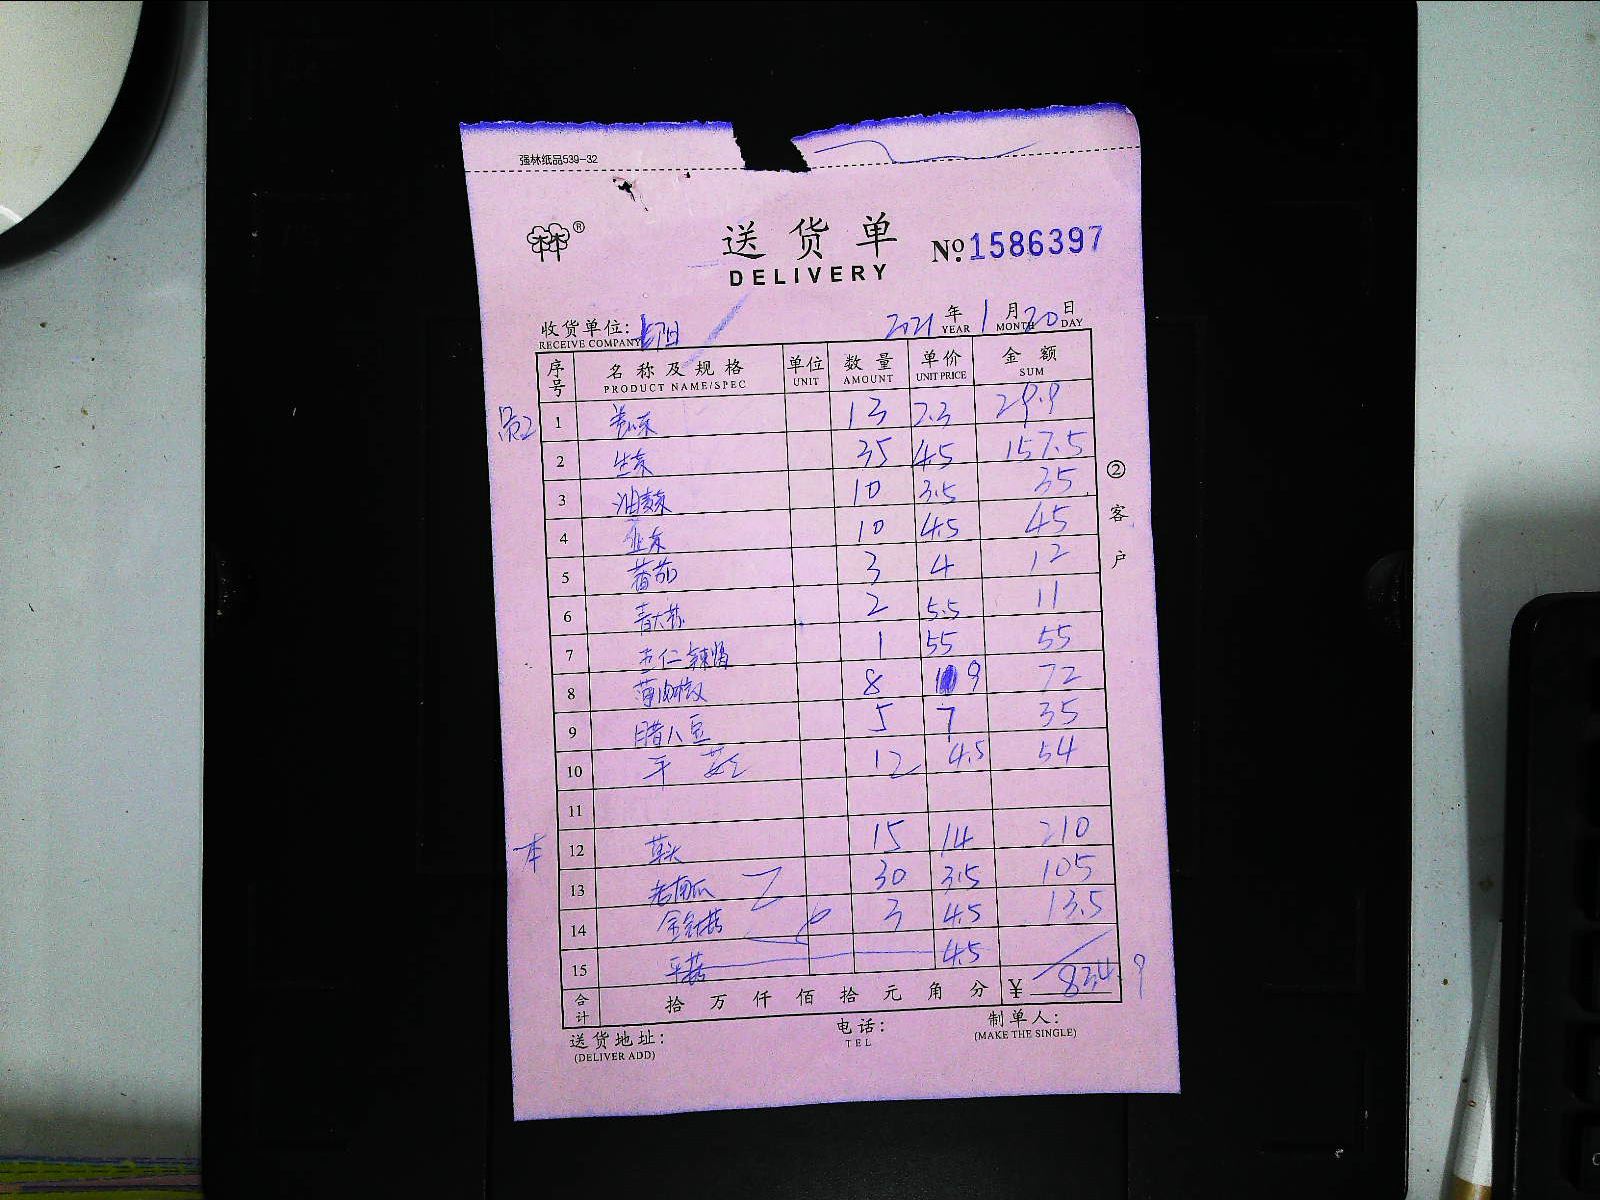 强林纸品539-32
林林®
送货单 Nº.1586397
DELIVERY
收货单位: 2021 年 1 月 20 日
RECEIVE COMPANY YEAR MONTH DAY
序号 名称及规格 单位 数量 单价 金额
PRODUCT NAME/SPEC UNIT AMOUNT UNIT PRICE SUM
1 13 2.3 29.9
2 生菜 35 4.5 157.5
3 油麦菜 10 3.5 35
4 韭菜 10 4.5 45
5 番茄 3 4 12
6 青大蒜 2 5.5 11
7 杏仁辣酱 1 55 55
8 薄肉椒 8 9 72
9 腊八豆 5 7 35
10 平菇 12 4.5 54
11
本 12 草头 15 14 210
13 老南瓜 30 3.5 105
14 金针菇 3 4.5 13.5
15 平菇 4.5
合计 拾万仟佰拾元角分 ¥ 834.9
② 客户
送货地址: 电话: 制单人:
(DELIVER ADD) TEL (MAKE THE SINGLE)